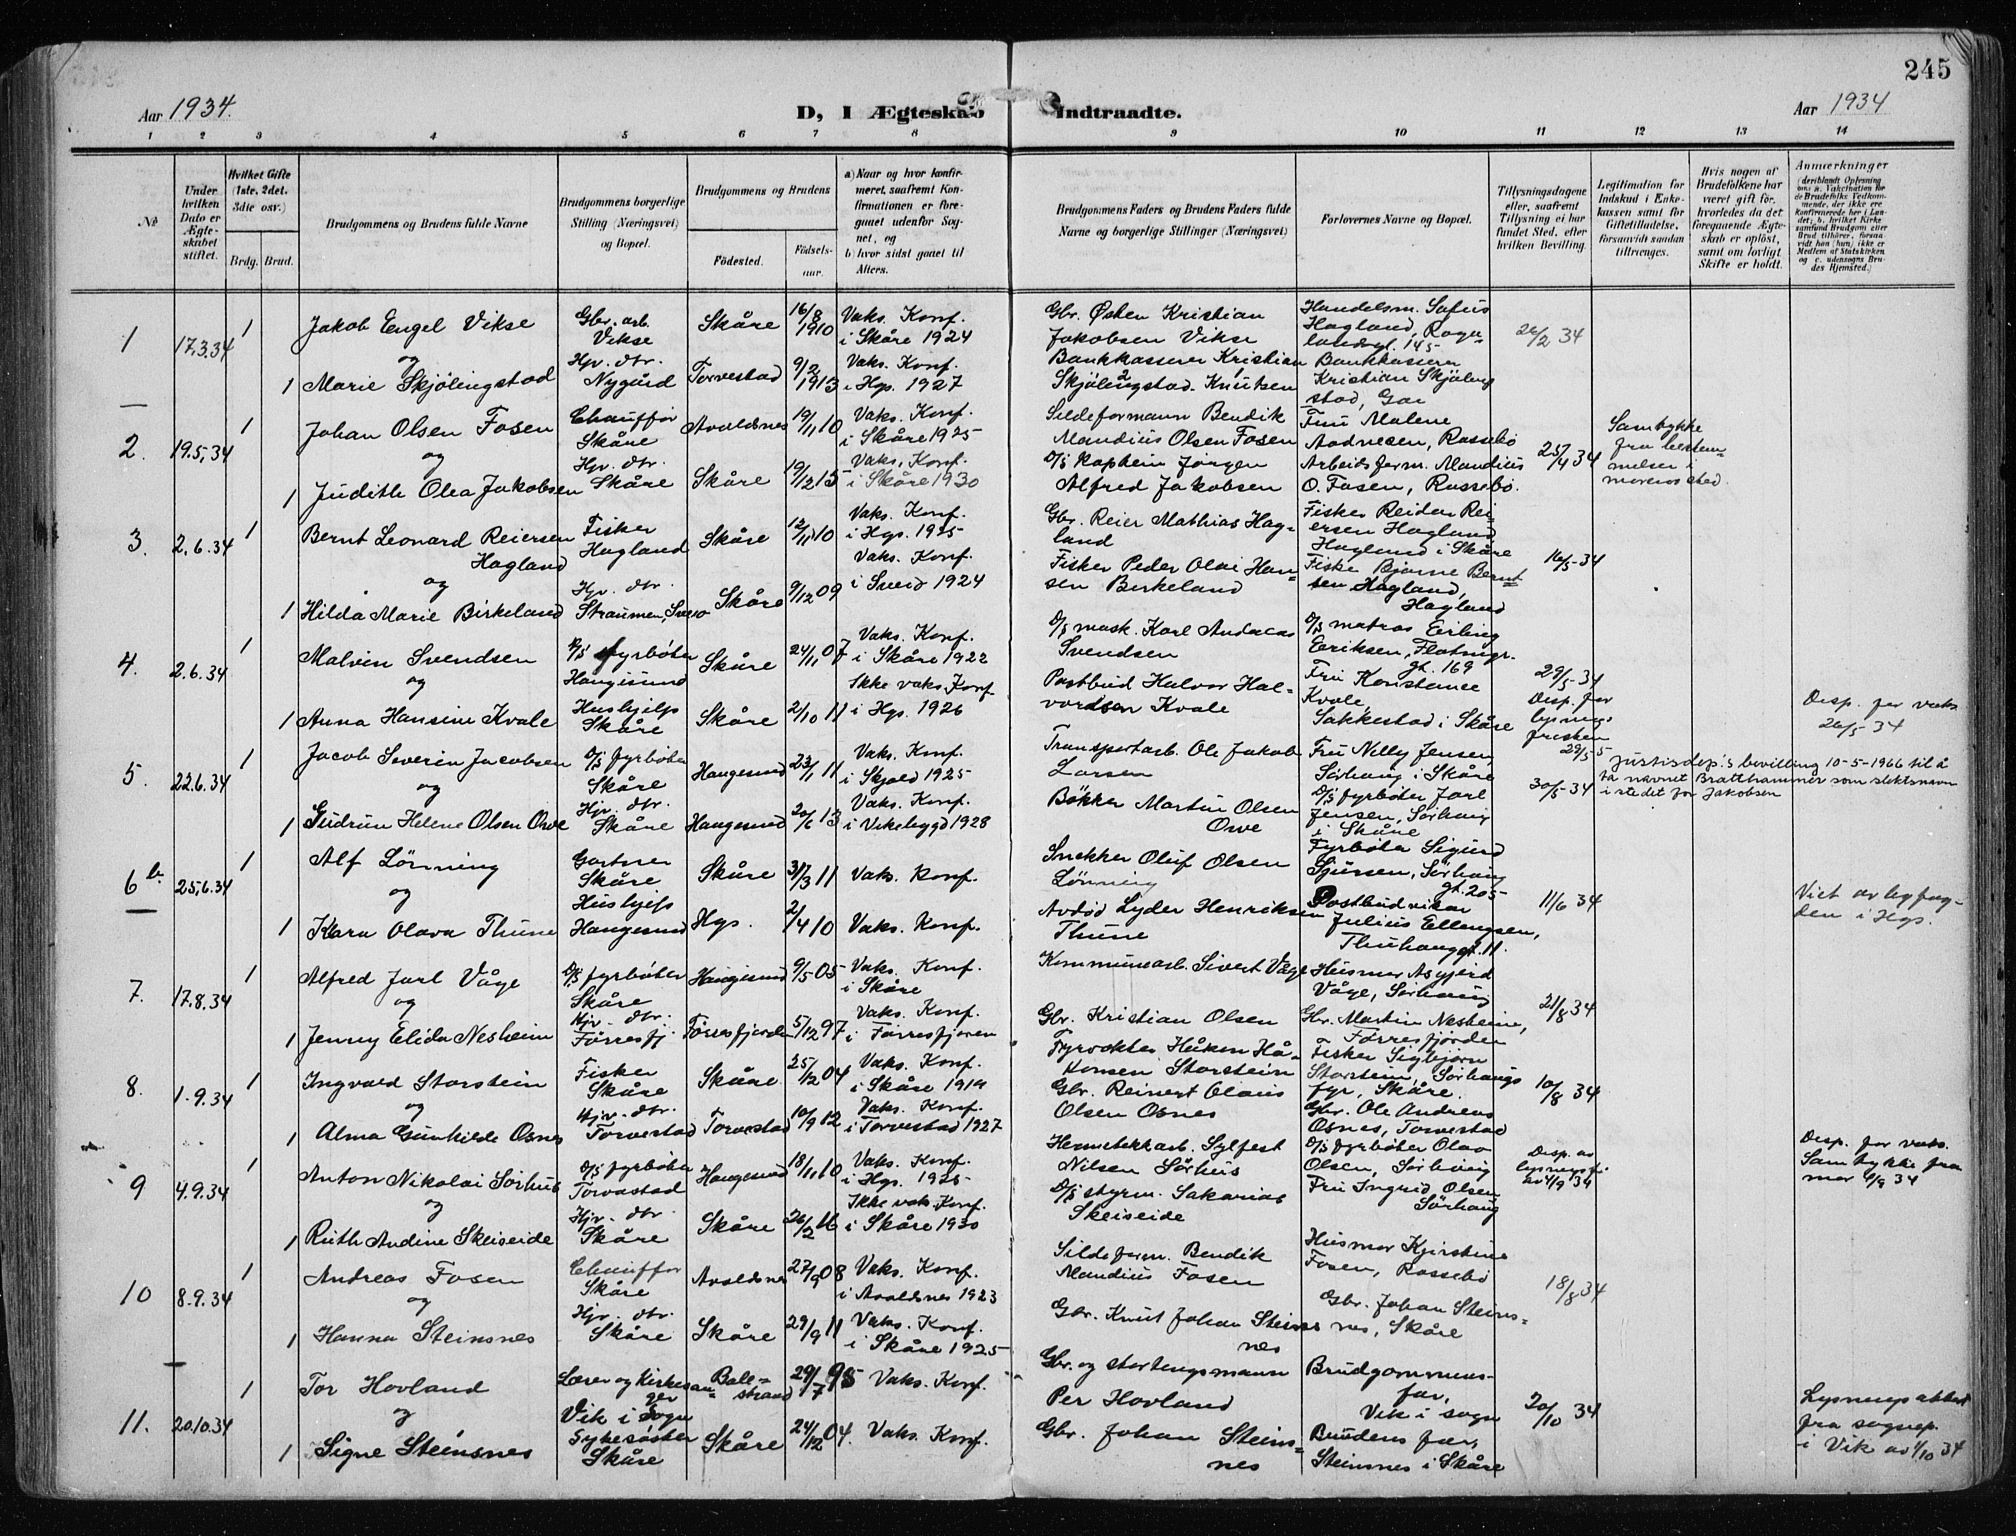 245
Aar 1934.
D, I Ægteskab Indtraadte.
Aar 1934
1 2 3 4 5 6 7 8 9 10 11 12 13 14
№
Under hvilken Dato er Ægteskabet stiftet.
Hvilket Gifte (1ste, 2det, 3die osv.)
Brdg. Brud.
Brudgommens og Brudens fulde Navne
Brudgommens borgerlige Stilling (Næringsvei) og Bopæl.
Brudgommens og Brudens
Födested.
Födselsaar.
a) Naar og hvor konfirmeret, saafremt Konfirmationen er foregaaet udenfor Sognet, og
b) hvor sidst gaaet til Alters.
Brudgommens Faders og Brudens Faders fulde Navne og borgerlige Stillinger (Næringsvei)
Forlovernes Navne og Bopæl.
Tillysningsdagene eller, saafremt Tillysning ei har fundet Sted, efter hvilken Bevilling.
Legitimation for Indskud i Enkekassen samt for Giftetilladelse, forsaavidt saadan tiltrænges.
Hvis nogen af Brudefolkene har været gift før, hvorledes da det foregaaende Ægteskab er oplöst, samt om lovligt Skifte er holdt.
Anmærkninger
(deriblandt Oplysning om: a. Vakcination for de Brudefolks Vedkommende, der ikke ere konfirmerede her i Landet; b. hvilket Kirkesamfund Brudgom eller Brud tilhörer, forsaavidt han (hun) ikke er Medlem af Statskirken og c. udensogns Brudes Hjemsted.)
1 17.3.34 1 Jakob Engel Vikse Gbr. arb. Vikse Skåre 16/8 1910 Vaks. Konf. i Skåre 1924 Gbr. Østen Kristian Jakobsen Vikse Handelsm. Sofus Hagland, Rogalandsgt. 145 26/2 34
og
1 Marie Skjølingstad Hjv. dtr. Nygård Torvestad 9/2 1913 Vaks. Konf. i Hgs. 1927 Bankkasserer Kristian Skjølingstad Knutsen Bankkasserer Kristian Skjølingstad, Gar
2. 19.5.34 1 Johan Olsen Fosen Chauffør Skåre Avaldsnes 19/11 10 Vaks. Konf. i Skåre 1925 Sildeformann Bendik Mandius Olsen Fosen Fru Malene Aadnesen, Rossebø 25/4 34 Samtykke fra
og
1 Judith Olea Jakobsen Hjv. dtr. Skåre Skåre 19/12 15 Vaks. Konf. i Skåre 1930 D/s kaptein Jørgen Alfred Jakobsen Arbeidsform. Mandius O. Fosen, Rossebø.
3. 2.6.34 1 Bernt Leonard Reiersen Hagland Fisker Hagland Skåre 12/11 10 Vaks. Konf. i Hgs. 1925 Gbr. Reier Mathias Hagland Fisker Reidar Reiersen Hagland Hagland i Skåre 16/5-34
og
1 Hilda Marie Birkeland Hjv. dtr. Straumen, Sveio Skåre 9/12 09 Vaks. Konf. i Sveio 1924 Fisker Peder Olai Hansen Birkeland Fisker Bjarne Berntsen Hagland, Hagland
4. 2.6.34 1 Malvin Svendsen D/s fyrbøter Haugesund Skåre 24/11 07 Vaks. Konf. i Skåre 1922 D/s mask. Karl Andreas Svendsen D/s matros Erling Eriksen, Flotmyr. gt. 169 29/5-34
og
1 Anna Hansine Kvale Hushjelp Skåre Skåre 2/10 11 Ikke vaks. Konf. i Hgs. 1926 Postbud Halvor Halvordsen Kvale Fru Konstanse Kvale, Sakkestad i Skåre Disp. for lysningsfristen 29/5 Disp. for vaks. 26/5-34
5. 22.6.34 1 Jacob Severin Jacobsen D/s fyrbøter Skåre Haugesund 23/1 11 Vaks. Konf. i Skjold 1925 Transportarb. Ole Jakob Larsen Fru Nelly Jensen, Sørhaug i Skåre 30/5-34 Justisdep's bevilling 10-5-1966 til å ta navnet Bratthammer som slektsnavn i stedet for Jakobsen
og
1 Gudrun Helene Olsen Owe Hjv. dtr. Skåre Haugesund 20/6 13 Vaks. Konf. i Vikebygd 1928 Bøkker Martin Olsen Owe D/s fyrbøter Jarl Jensen, Sørhaug i Skåre
6 b. 25.6.34 1 Alf Lönning Gartner Skåre Skåre 31/3 11 Vaks. Konf. Snekker Oluf Olsen Lönning Fyrbøter Sigurd Sjursen, Sørhaug gt. 205 11/6 34 Viet av byfogden i Hgs.
og
1 Klara Olava Thune Hushjelp Haugesund Hgs. 2/4 10 Vaks. Konf. Avdød Lyder Henriksen Thune Postbudvikar Julius Ellingsen, Thuhauggt. 11.
7. 17.8.34 1 Alfred Jarl Våge D/s fyrbøter Skåre Haugesund 9/5 05 Vaks. Konf. i Skåre Kommunearb. Sivert Våge Husmor Asgjerd Våge, Sørhaug 21/8 34
og
1 Jenny Elida Nesheim Hjv. dtr. Førresfj. Førresfjorden 5/12 97 Vaks. Konf. i Førresfjoren Gbr. Kristian Olsen Gbr. Martin Nesheim, Førresfjorden
8. 1.9.34 1 Ingvald Storstein Fisker Skåre Skåre 25/12 04 Vaks. Konf. i Skåre 1919 Fyrvokter Håkon Håkonsen Storstein Fisker Sigbjørn Storstein, Sørhaugs fyr, Skåre. 10/8 34
og
1 Alma Gunhilde Osnes Hjv. dtr. Torvestad Torvestad 10/9 12 Vaks. Konf. i Torvestad 1927 Gbr. Reinert Olaus Olsen Osnes Gbr. Ole Andreas Osnes, Torvestad
9 4.9.34 1 Anton Nikolai Sørhus D/s fyrbøter Torvastad Haugesund 18/11 10 Vaks. Konf. i Hgs. 1925 Hermetikkarb. Sylfest Nilsen Sørhus D/s fyrbøter Olav Olsen, Sørhaug Disp. av lysningsfr. av 4/9 34 Disp. for vaks. Samtykke fra mor 4/9 34
og
1 Ruth Andine Skeiseide Hjv. dtr. Skåre Skåre 26/2 16 Ikke vaks. Konf. i Skåre 1930 D/s styrm. Sakarias Skeiseide Fru Ingrid Olsen Sørhaug
10 8.9.34 1 Andreas Fosen Chauffør Skåre Avaldsnes 27/9 08 Vaks. Konf. i Avaldsnes 1923 Sildeform. Bendik Mandius Fosen Husmor Kjirstine Fosen, Rossebø 18/8 34
og
1 Hanna Steinsnes Hjv. dtr. Skåre Skåre 29/9 11 Vaks. Konf. i Skåre 1925 Gbr. Knut Johan Steinsnes Gbr. Johan Steinsnes, Skåre
11. 20.10.34 1 Tor Hovland Lærer og kirkesanger Vik i Sogn Balestrand 29/7 95 Vaks. Konf. Gbr. og stortingsmann Per Hovland Brudgommens far, Vik i sogn 20/10 34 Lysningsattest fra sognep. i Vik av 1/10 34
og
1 Signe Steinsnes Sykesøster Skåre Skåre 24/12 04. Vaks. Konf. Gbr. Johan Steinsnes Brudens far, Steinsnes i Skåre